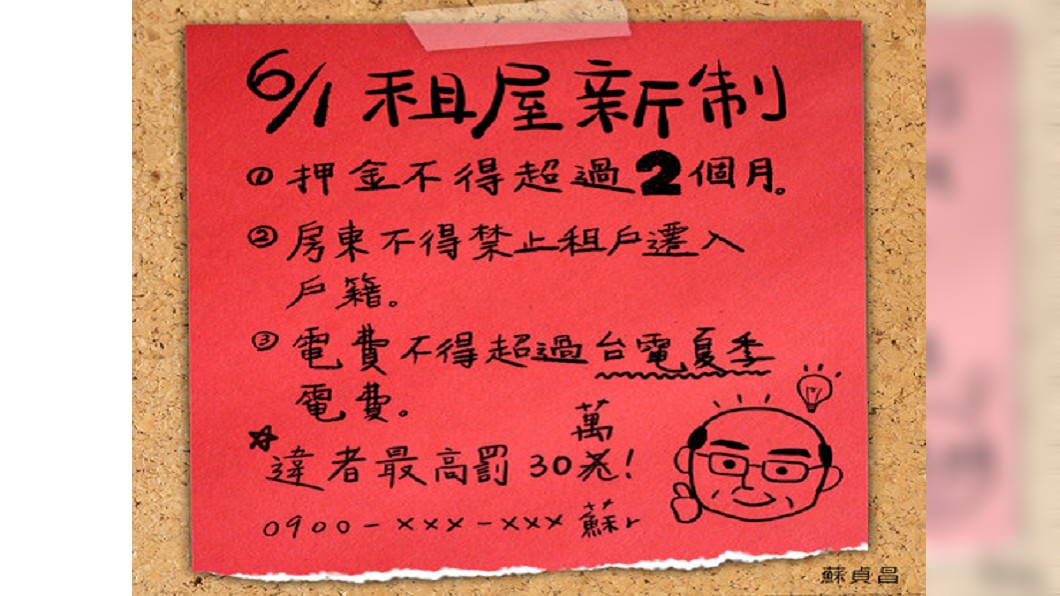 6/1 租屋新制
① 押金不得超過2個月。
② 房東不得禁止租戶遷入
戶籍。
③ 電費不得超過台電夏季
電費。
萬
☆違者最高罰30元!
0900-×××-×××蘇r
蘇貞昌